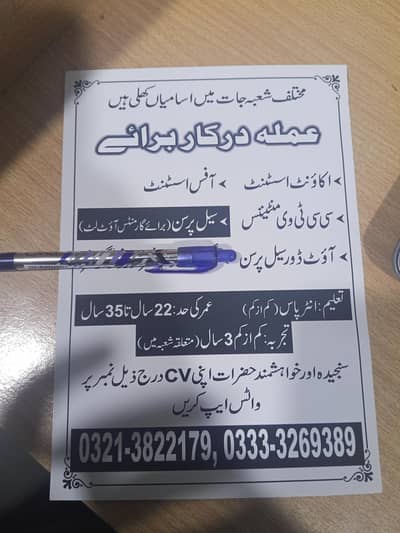 مختلف شعبہ جات میں اسامیاں کھلی ہیں
عملہ درکار برائے
اکاؤنٹ اسسٹنٹ
آفس اسسٹنٹ
سی سی ٹی وی مینٹیننس
سیل پرسن (برائے گارمنٹس آؤٹ لٹ)
آؤٹ ڈور سیل پرسن
تعلیم: انٹر پاس (کم از کم) عمر کی حد: 22 سال تا 35 سال
تجربہ: کم از کم 3 سال (متعلقہ شعبہ میں)
سنجیدہ اور خواہشمند حضرات اپنی CV درج ذیل نمبر پر
واٹس ایپ کریں
0321-3822179, 0333-3269389